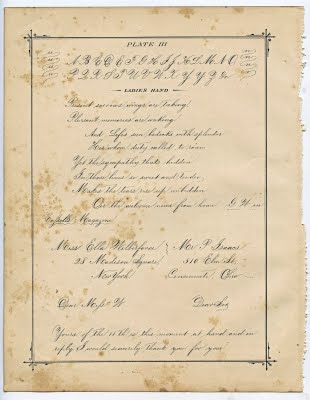 PLATE III
A B C D E F G H I J K L M N O
P Q R S T U V W X Y Y Z &
LADIES HAND
Pleasant memories are waking
And Life's sun bedecks with splendor
Him whom duty called to roam
Yet the sympathy that's hidden
In those lines so sweet and tender
Makes the tears rise up unbidden
O'er the welcome news from home G W in
Cassell's Magazine
Miss Ella Wilberforce
28 Madison Square
New York
Mr P
510 Elm St
Cincinnati Ohio
Dear Miss W
Dear Sir
Yours of the 11th is this moment at hand and in
reply I would sincerely thank you for your